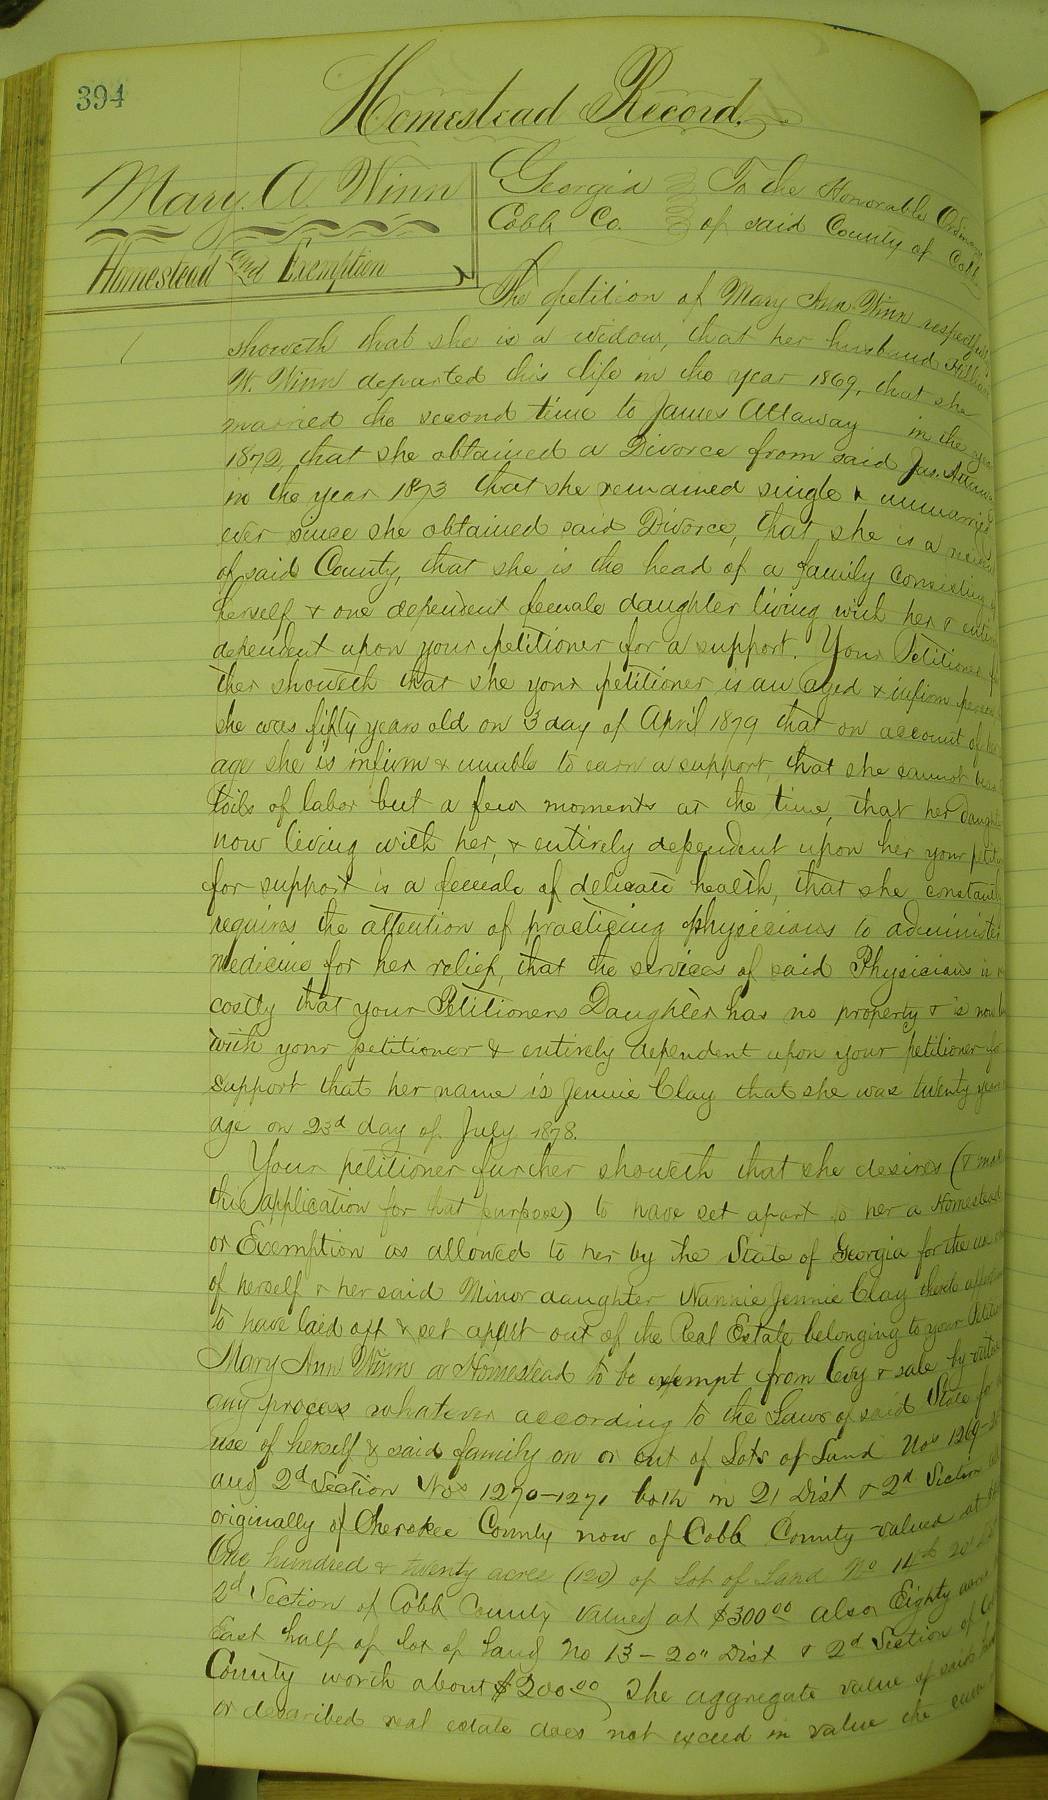 394
Homestead Record.
Mary. A Winn
Homestead and Exemption
Georgia To the Honorable Ordinary
Cobb Co. of said County of Cobb
The petition of Mary Ann Winn
showeth that she is a widow, that her husband
W. Winn departed this life in the year 1869, that she
married the second time to James Attaway in the year
1872, that she obtained a Divorce from said Jas. Attaway
in the year 1873 that she remained single & unmarried
ever since she obtained said Divorce, that she is a
of said County, that she is the head of a family consisting of
herself & one dependent female daughter living with her &
dependent upon your petitioner for a support. Your Petitioner
ther showeth that she your petitioner is an aged & infirm
she was fifty years old on 3 day of April 1879 that on account of her
age she is infirm & unable to earn a support, that she cannot
toils of labor but a few moments at the time, that her
now living with her, & entirely dependent upon her your
for support is a female of delicate health, that she
requires the attention of practicing physicians to administer
medicine for her relief, that the services of said Physicians is
costly that your Petitioners Daughter has no property & is now
with your petitioner & entirely dependent upon your petitioner
support that her name is Jennie Clay that she was twenty years
age on 23d day of July 1878.
Your petitioner further showeth that she desires (&
this application for that purpose) to have set apart to her a Homestead
or Exemption as allowed to her by the State of Georgia for the use
of herself & her said Minor daughter Nannie Jennie Clay
to have laid off & set apart out of the Real Estate belonging to your
Mary Ann Winn a Homestead to be exempt from levy & sale by
any process whatever according to the Laws of said State for
use of herself & said family on or out of Lots of Land Nos 1269
and 2d Section Nos 1270–1271 both in 21 Dist & 2d Section
originally of Cherokee County now of Cobb County valued at
One hundred & twenty acres (120) of Lot of Land No 14th 20
2d Section of Cobb County valued at $300.00 also Eighty acres
East half of lot of Land No 13 – 20" Dist & 2d Section of
County worth about $200.00, The aggregate value of said
or described real estate does not exceed in value the sum